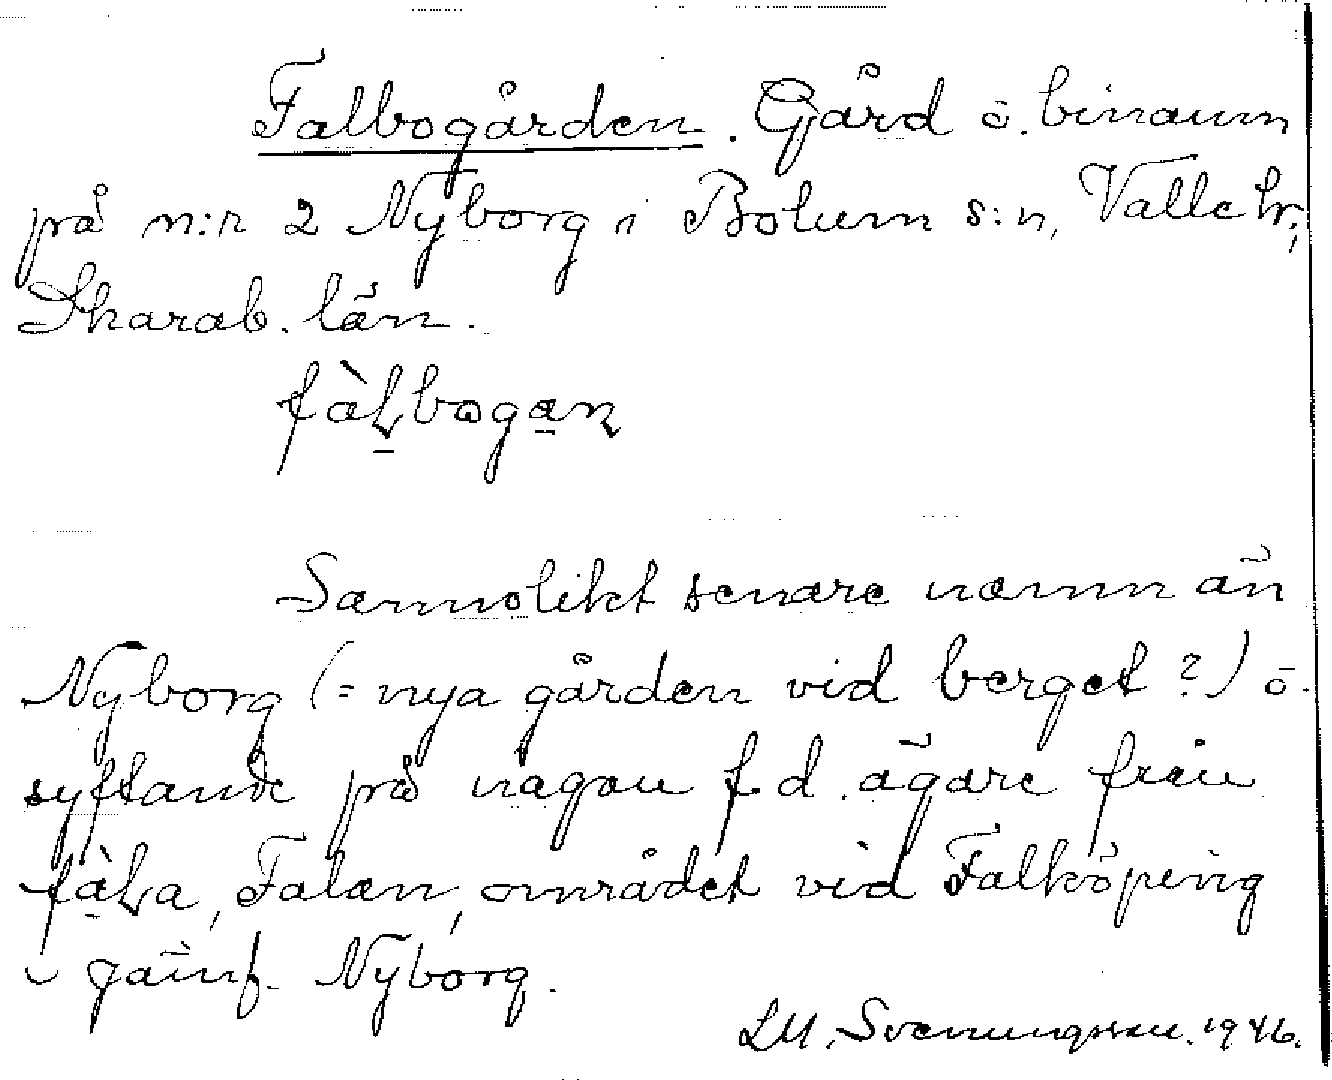 Falbogården. Gård ö. binamn
på n:r 2 Nyborg i Bolum s:n, Valle hr;
Skarab. län.
fàḻboga̱n
Sannolikt senare namn än
Nyborg (= nya gården vid berget?) ö.
syftande på någon f.d. ägare från
fàḻa, Falan, området vid Falköping
jämf. Nyborg.
LM. Svenungsson. 1946.